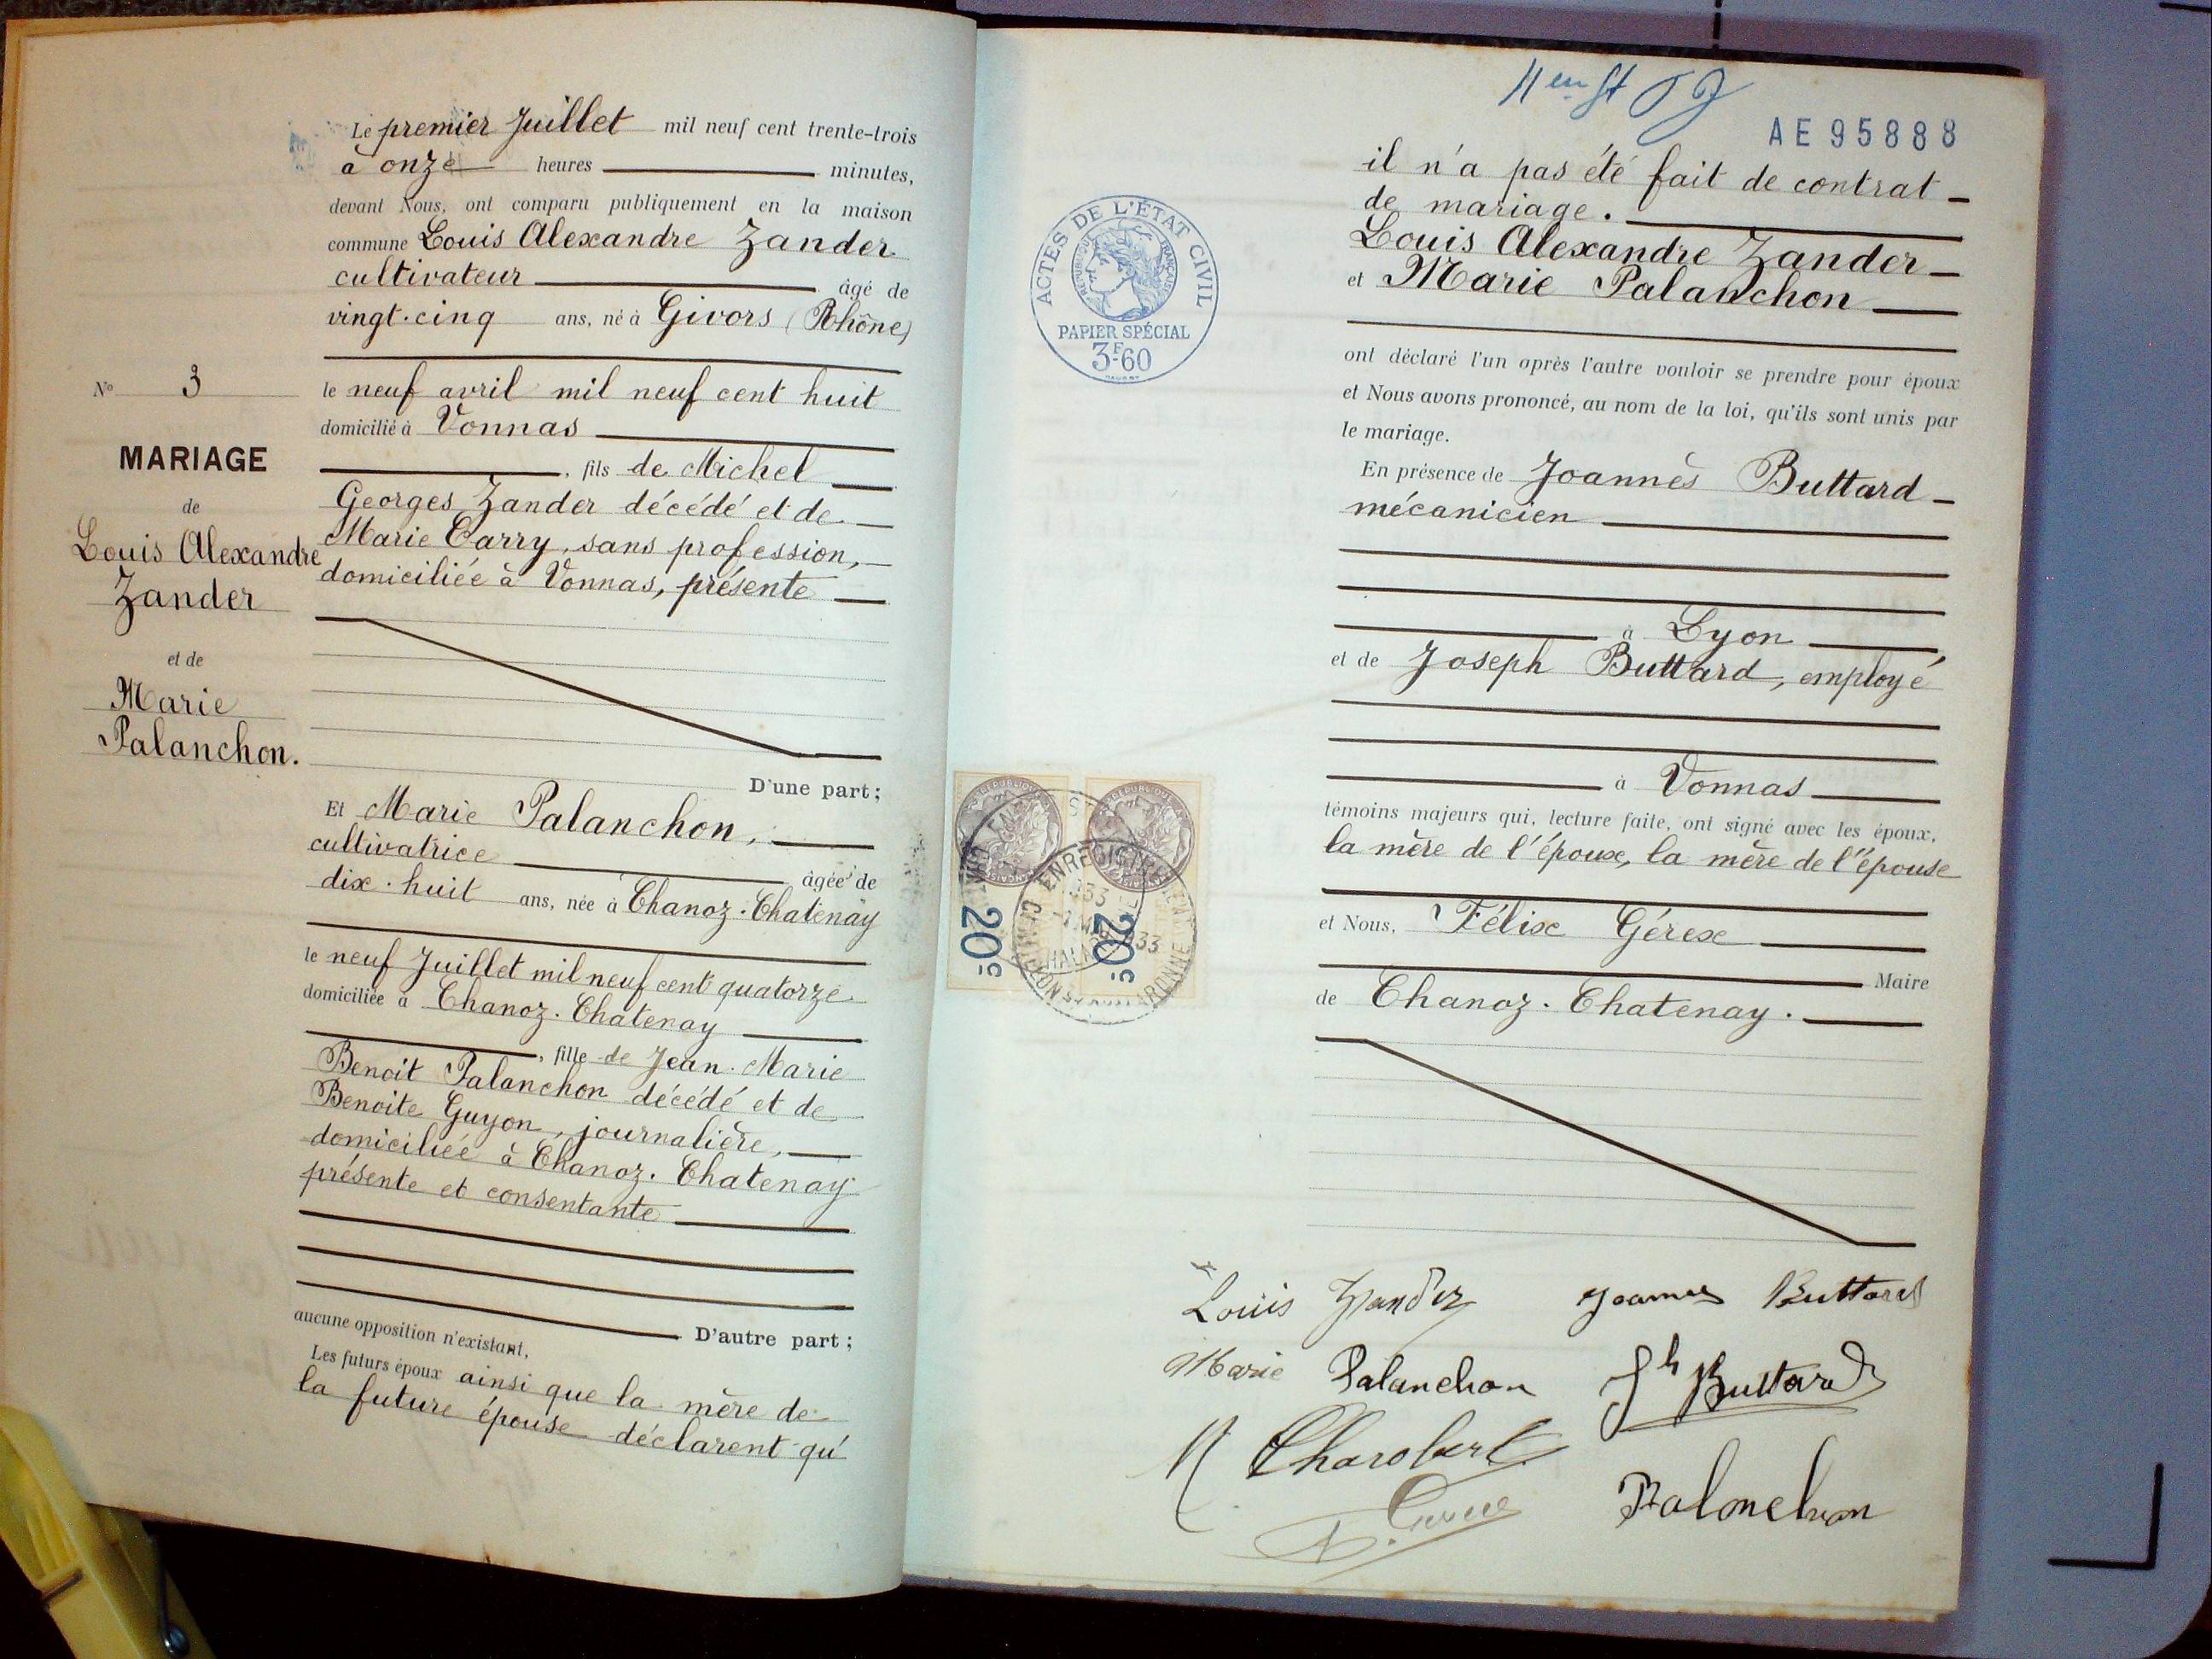 Le premier Juillet mil neuf cent trente-trois
à onze heures minutes,
devant Nous, ont comparu publiquement en la maison
commune Louis Alexandre Zander
cultivateur âgé de
vingt-cinq ans, né à Givors (Rhône)
le neuf avril mil neuf cent huit
domicilié à Vonnas
, fils de Michel
Georges Zander décédé et de
Marie Carry, sans profession,
domiciliée à Vonnas, présente
D'une part;
N° 3
MARIAGE
de
Louis Alexandre
Zander
et de
Marie
Palanchon.
Et Marie Palanchon,
cultivatrice âgée de
dix-huit ans, née à Chanoz-Chatenay
le neuf Juillet mil neuf cent quatorze
domiciliée à Chanoz-Chatenay
, fille de Jean-Marie
Benoit Palanchon décédé et de
Benoite Guyon, journalière,
domiciliée à Chanoz-Chatenay
présente et consentante
D'autre part;
aucune opposition n'existant,
Les futurs époux ainsi que la mère de
la future épouse déclarent qu'
AE 95888
il n'a pas été fait de contrat
de mariage.
Louis Alexandre Zander
et Marie Palanchon
ont déclaré l'un après l'autre vouloir se prendre pour époux
et Nous avons prononcé, au nom de la loi, qu'ils sont unis par
le mariage.
En présence de Joannès Buttard
mécanicien
à Lyon
et de Joseph Buttard, employé
à Vonnas
témoins majeurs qui, lecture faite, ont signé avec les époux,
la mère de l'époux, la mère de l'épouse
et Nous, Félix Gérex
Maire
de Chanoz-Chatenay.
ACTES DE L'ÉTAT CIVIL
RÉPUBLIQUE FRANÇAISE
PAPIER SPÉCIAL
3F.60
20c
20c
ENREGISTREMENT
Louis Zander Joannes Buttard
Marie Palanchon Jh Buttard
Charobert
Palanchon